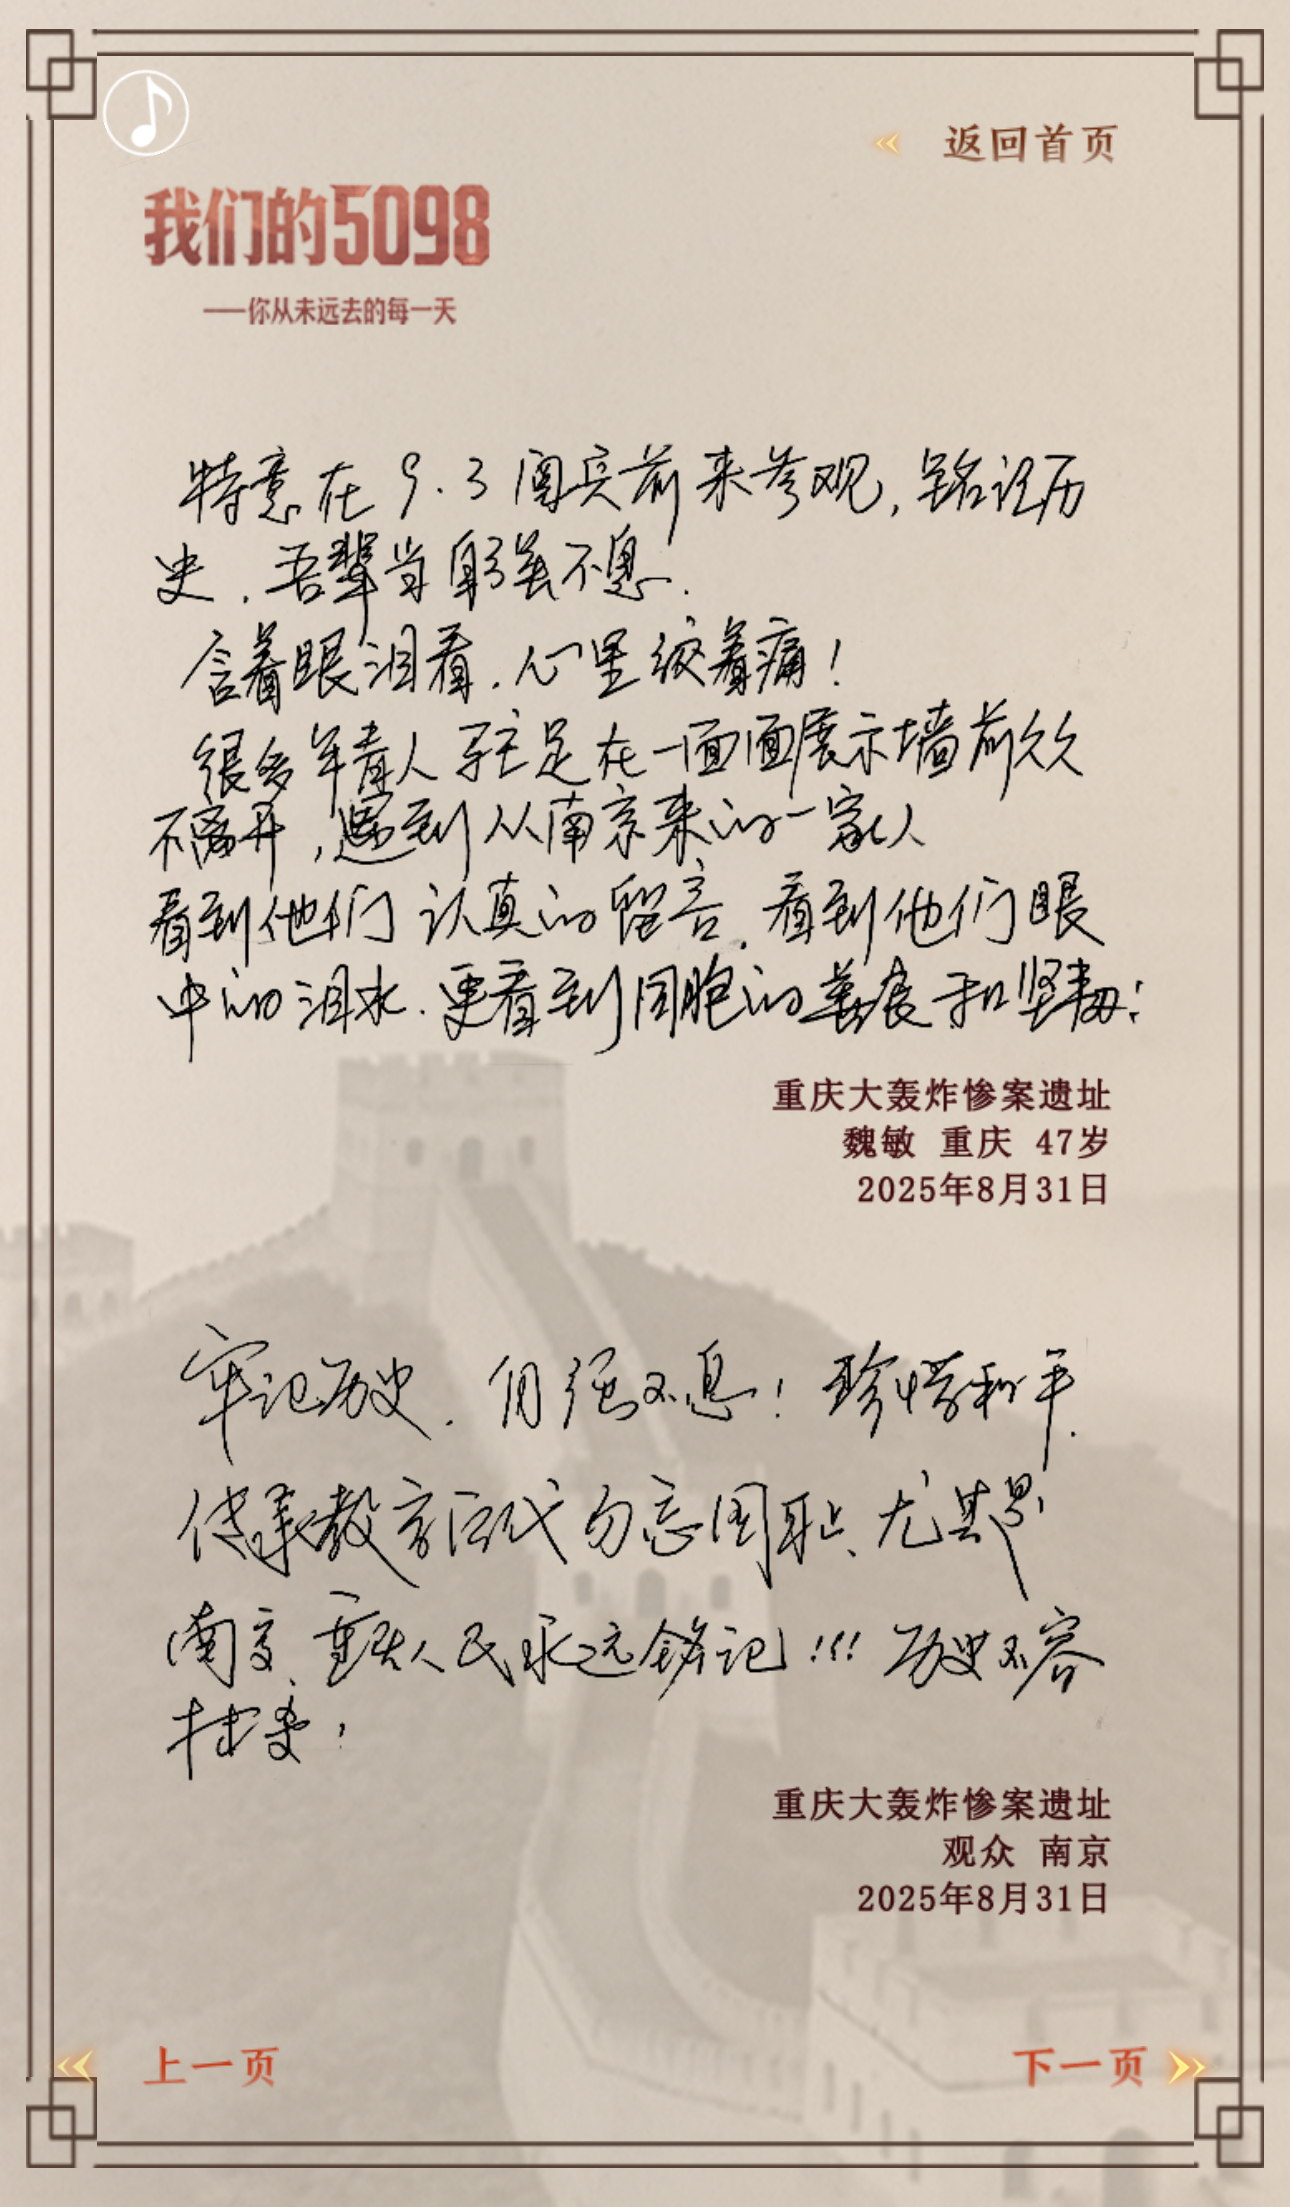 返回首页
我们的5098
——你从未远去的每一天
特意在9.3阅兵前来参观,铭记历
史.吾辈当躬善不息.
含着眼泪看.心里绞着痛!
很多年青人驻足在一面面展示墙前久久
不离开,遇到从南京来的一家人
看到他们认真的留言.看到他们眼
中的泪水.更看到同胞的善良和坚韧!
重庆大轰炸惨案遗址
魏敏 重庆 47岁
2025年8月31日
牢记历史.自强不息!珍惜和平.
传承教育后代勿忘国耻、尤其是
南京、重庆人民永远铭记!!!历史不容
重庆大轰炸惨案遗址
观众 南京
2025年8月31日
上一页
下一页